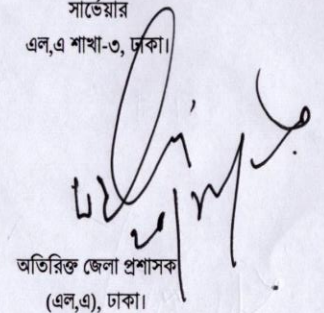 সার্ভেয়ার
এল,এ শাখা-৩, ঢাকা।
অতিরিক্ত জেলা প্রশাসক
(এল,এ), ঢাকা।